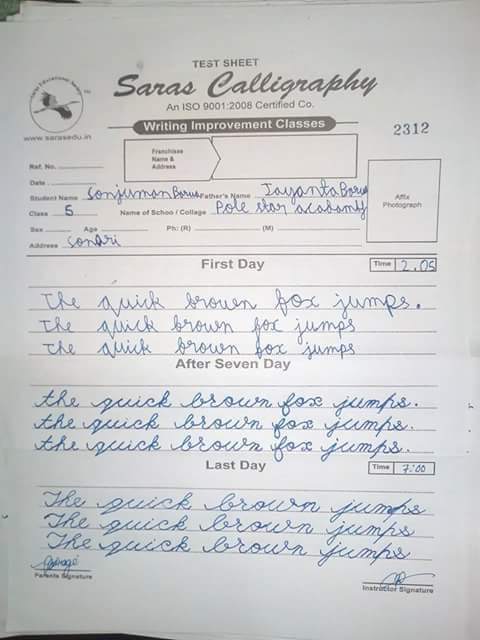 TEST SHEET
Saras Calligraphy
An ISO 9001:2008 Certified Co.
www.sarasedu.in
Writing Improvement Classes
2312
Franchises
Name &
Address
Ref. No.
Date
Student Name Sonjuman Borua Father's Name Jayanta Borua
Class 5 Name of Schoo / Collage Pole star acabamy
Sex Age Ph: (R) (M)
Address Sonari
Affix
Photograph
First Day
Time 2.05
The quick brown fox jumps.
The quick brown fox jumps
The quick brown fox jumps
After Seven Day
the quick brown fox jumps.
the quick brown fox jumps.
the quick brown fox jumps.
Last Day
Time 7:00
The quick brown jumps
The quick brown jumps
The quick brown jumps
Parents Signature
Instructor Signature